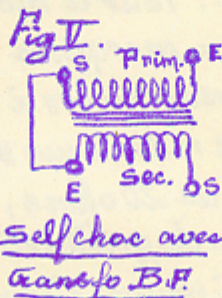 Fig V.
S Prim. E
E Sec. S
Self choc avec
Transfo B.F.